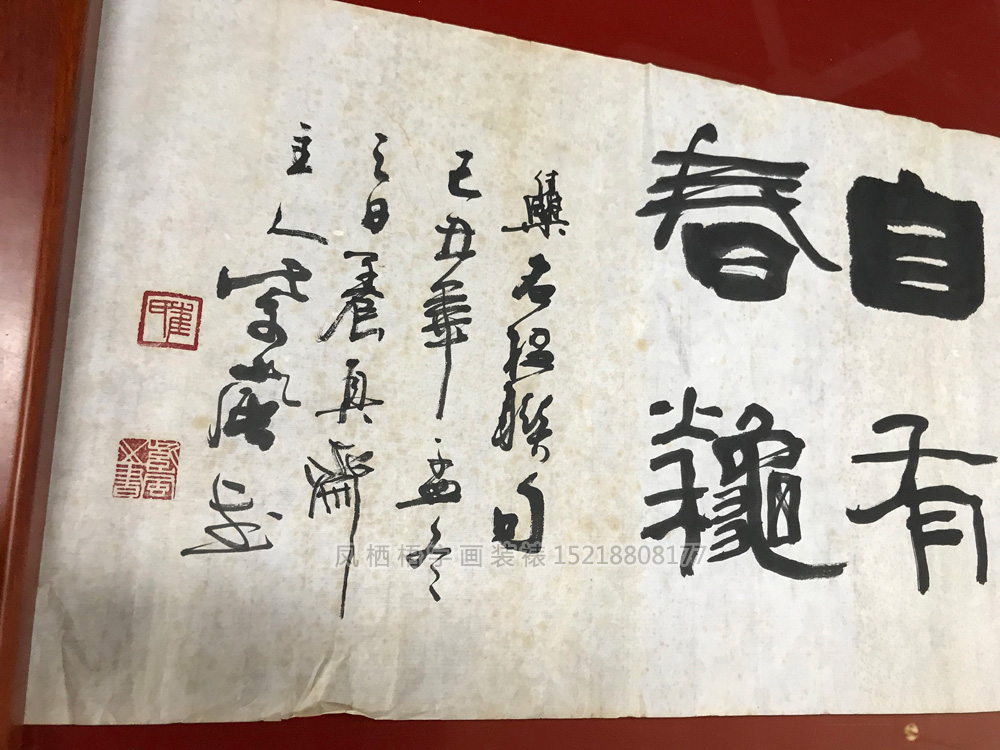 自有
春龝
集石經聯句
己丑華孟冬
之日養真齋
主人
凤栖梧字画装裱 15218808177